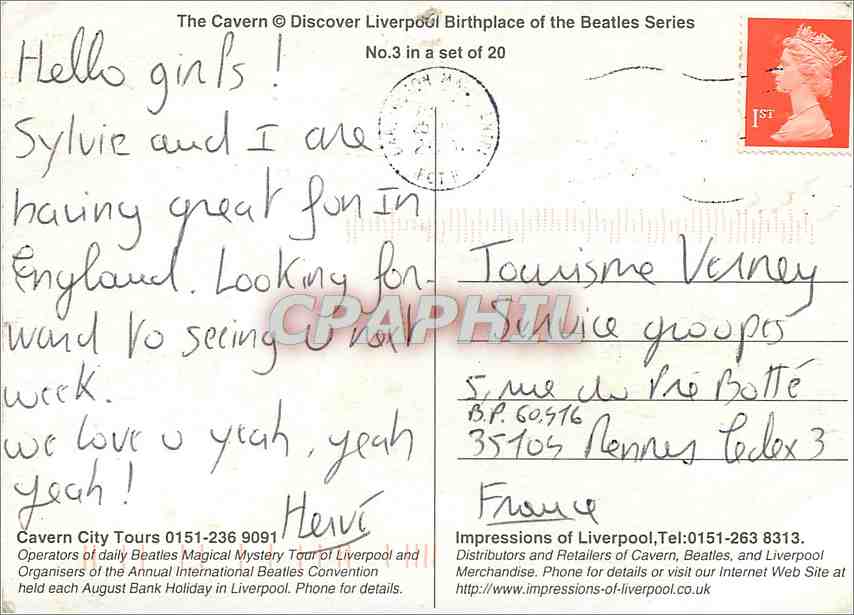 The Cavern © Discover Liverpool Birthplace of the Beatles Series
No.3 in a set of 20
1ST
Hello girls !
Sylvie and I are
having great fun In
England. Looking for-
ward to seeing U next
week.
we love u yeah, yeah
yeah !
Hervé
Tourisme Verney
Service groupes
5, rue du Pré Botté
B.P. 60.416
35104 Rennes Cedex 3
France
CPAPHIL
Cavern City Tours 0151-236 9091
Operators of daily Beatles Magical Mystery Tour of Liverpool and
Organisers of the Annual International Beatles Convention
held each August Bank Holiday in Liverpool. Phone for details.
Impressions of Liverpool,Tel:0151-263 8313.
Distributors and Retailers of Cavern, Beatles, and Liverpool
Merchandise. Phone for details or visit our Internet Web Site at
http://www.impressions-of-liverpool.co.uk